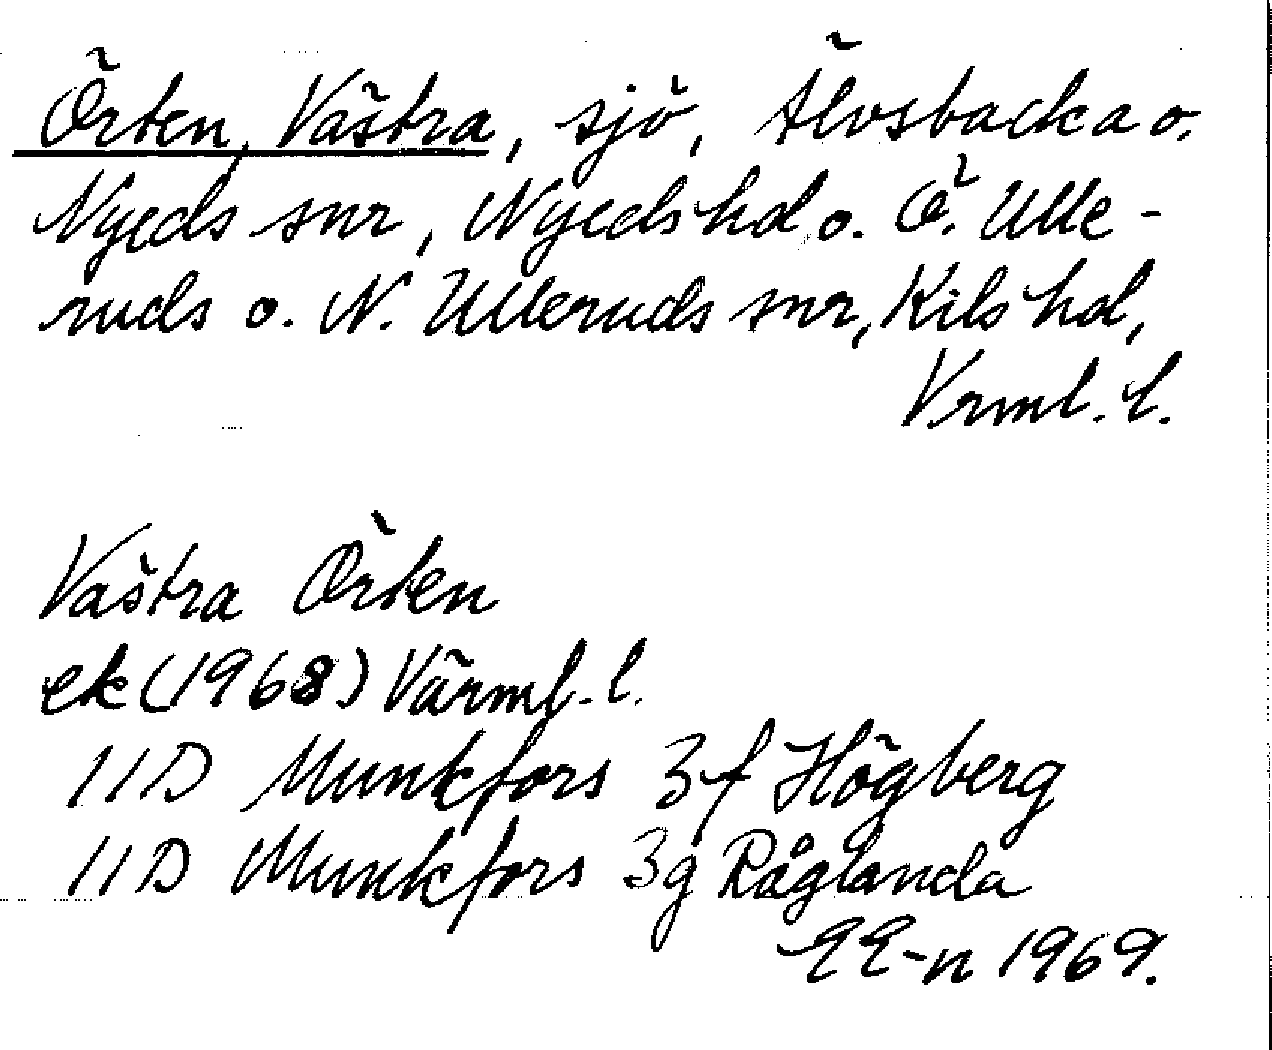 Örten, Västra, sjö, Älvsbacka o.
Nyeds snr, Nyeds hd o. Ö. Ulle-
ruds o. N. Ulleruds snr, Kils hd,
Vrml. l.
Västra Örten
ek (1968) Värml. l.
11D Munkfors 3f Högberg
11D Munkfors 3g Råglanda
EE-n 1969.